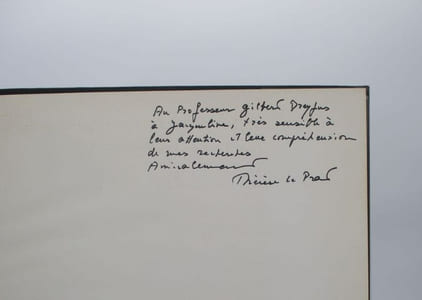 Au Professeur Gilbert Dreyfus
à Jacqueline, très sensible à
leur attention et leur compréhension
de mes recherches
Amicalement
Thérèse Le Prat